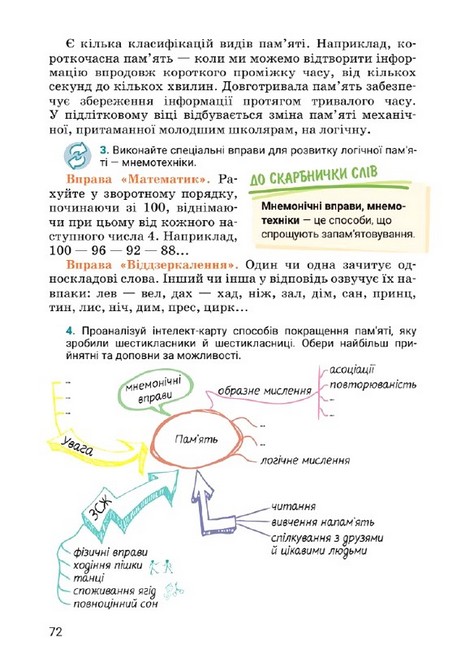 Є кілька класифікацій видів пам’яті. Наприклад, ко-
роткочасна пам’ять — коли ми можемо відтворити інфор-
мацію впродовж короткого проміжку часу, від кількох
секунд до кількох хвилин. Довготривала пам’ять забезпе-
чує збереження інформації протягом тривалого часу.
У підлітковому віці відбувається зміна пам’яті механіч-
ної, притаманної молодшим школярам, на логічну.
3. Виконайте спеціальні вправи для розвитку логічної пам’я-
ті — мнемотехніки.
Вправа «Математик». Ра-
хуйте у зворотному порядку,
починаючи зі 100, віднімаю-
чи при цьому від кожного на-
ступного числа 4. Наприклад,
100 — 96 — 92 — 88...
ДО СКАРБНИЧКИ СЛІВ
Мнемонічні вправи, мнемо-
техніки — це способи, що
спрощують запам’ятовування.
Вправа «Віддзеркалення». Один чи одна зачитує од-
носкладові слова. Інший чи інша у відповідь озвучує їх на-
впаки: лев — вел, дах — хад, ніж, зал, дім, сан, принц,
тин, лис, ніч, дим, прес, цирк...
4. Проаналізуй інтелект-карту способів покращення пам’яті, яку
зробили шестикласники й шестикласниці. Обери найбільш при-
йнятні та доповни за можливості.
мнемонічні
вправи
образне мислення
асоціації
повторюваність
...
...
...
...
...
Увага
Пам’ять
логічне мислення
ЗСЖ
читання
вивчення напам’ять
спілкування з друзями
й цікавими людьми
фізичні вправи
ходіння пішки
танці
споживання ягід
повноцінний сон
72